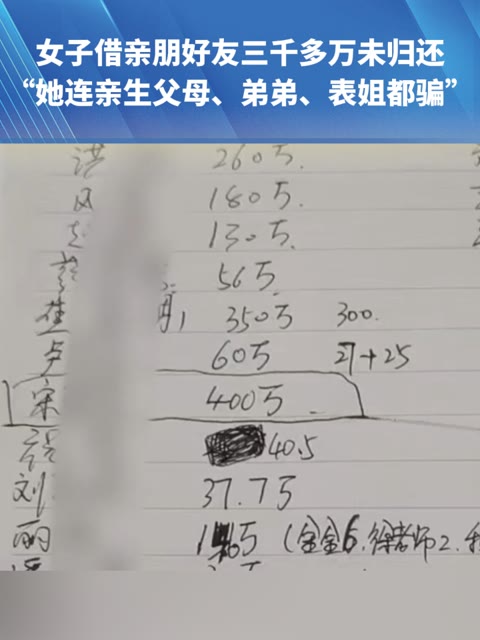 女子借亲朋好友三千多万未归还
“她连亲生父母、弟弟、表姐都骗”
洪 260万.
风 180万.
130万.
56万
崔 350万 300.
卢 60万 27+25
宋 400万
40.5
刘 37.7万
丽 16万 (金金6.徐老师2.